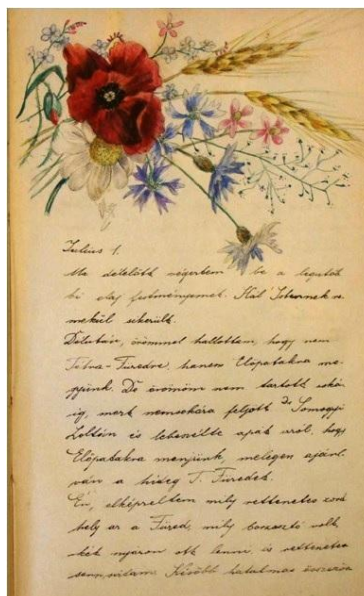 Julius 1.
Ma délelőtt végeztem be a legutób
bi olaj festményemet. Hál' Istennek re
mekül sikerült.
Délután, örömmel hallottam, hogy nem
Tátra-Füredre, hanem Előpatakra me-
gyünk. De örömöm nem tartott soká
ig, mert nemsokára feljött Dr Somogyi
Zoltán és lebeszélte apát arról, hogy
Előpatakra menjünk, melegen ajánl-
ván a hideg T. Füredet.
Én, elképzeltem mily rettenetes
hely az a Füred, mily borzasztó volt
két nyáron ott lenni, és rettenetes
Később hatalmas